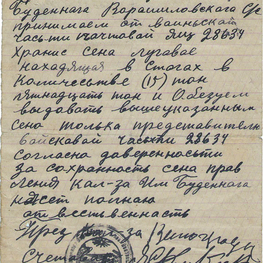 Буденнага Варашиловскага С/с
принимаем от воиньской
Часьти почтовай Ящ 28634
Хранис сена луговае
находящая в Стогах в
Количесьтве (15) тон
пятнадцать тон и Обезуем
выдавать вышеуказанным
Сена толька представителю
Байскавай Часьти 28634
Согласна доверенасьти
За сохраность сена прав
ление Кал-за Им Буденнага
несет полную
ответственность
Пред за
Счетовод